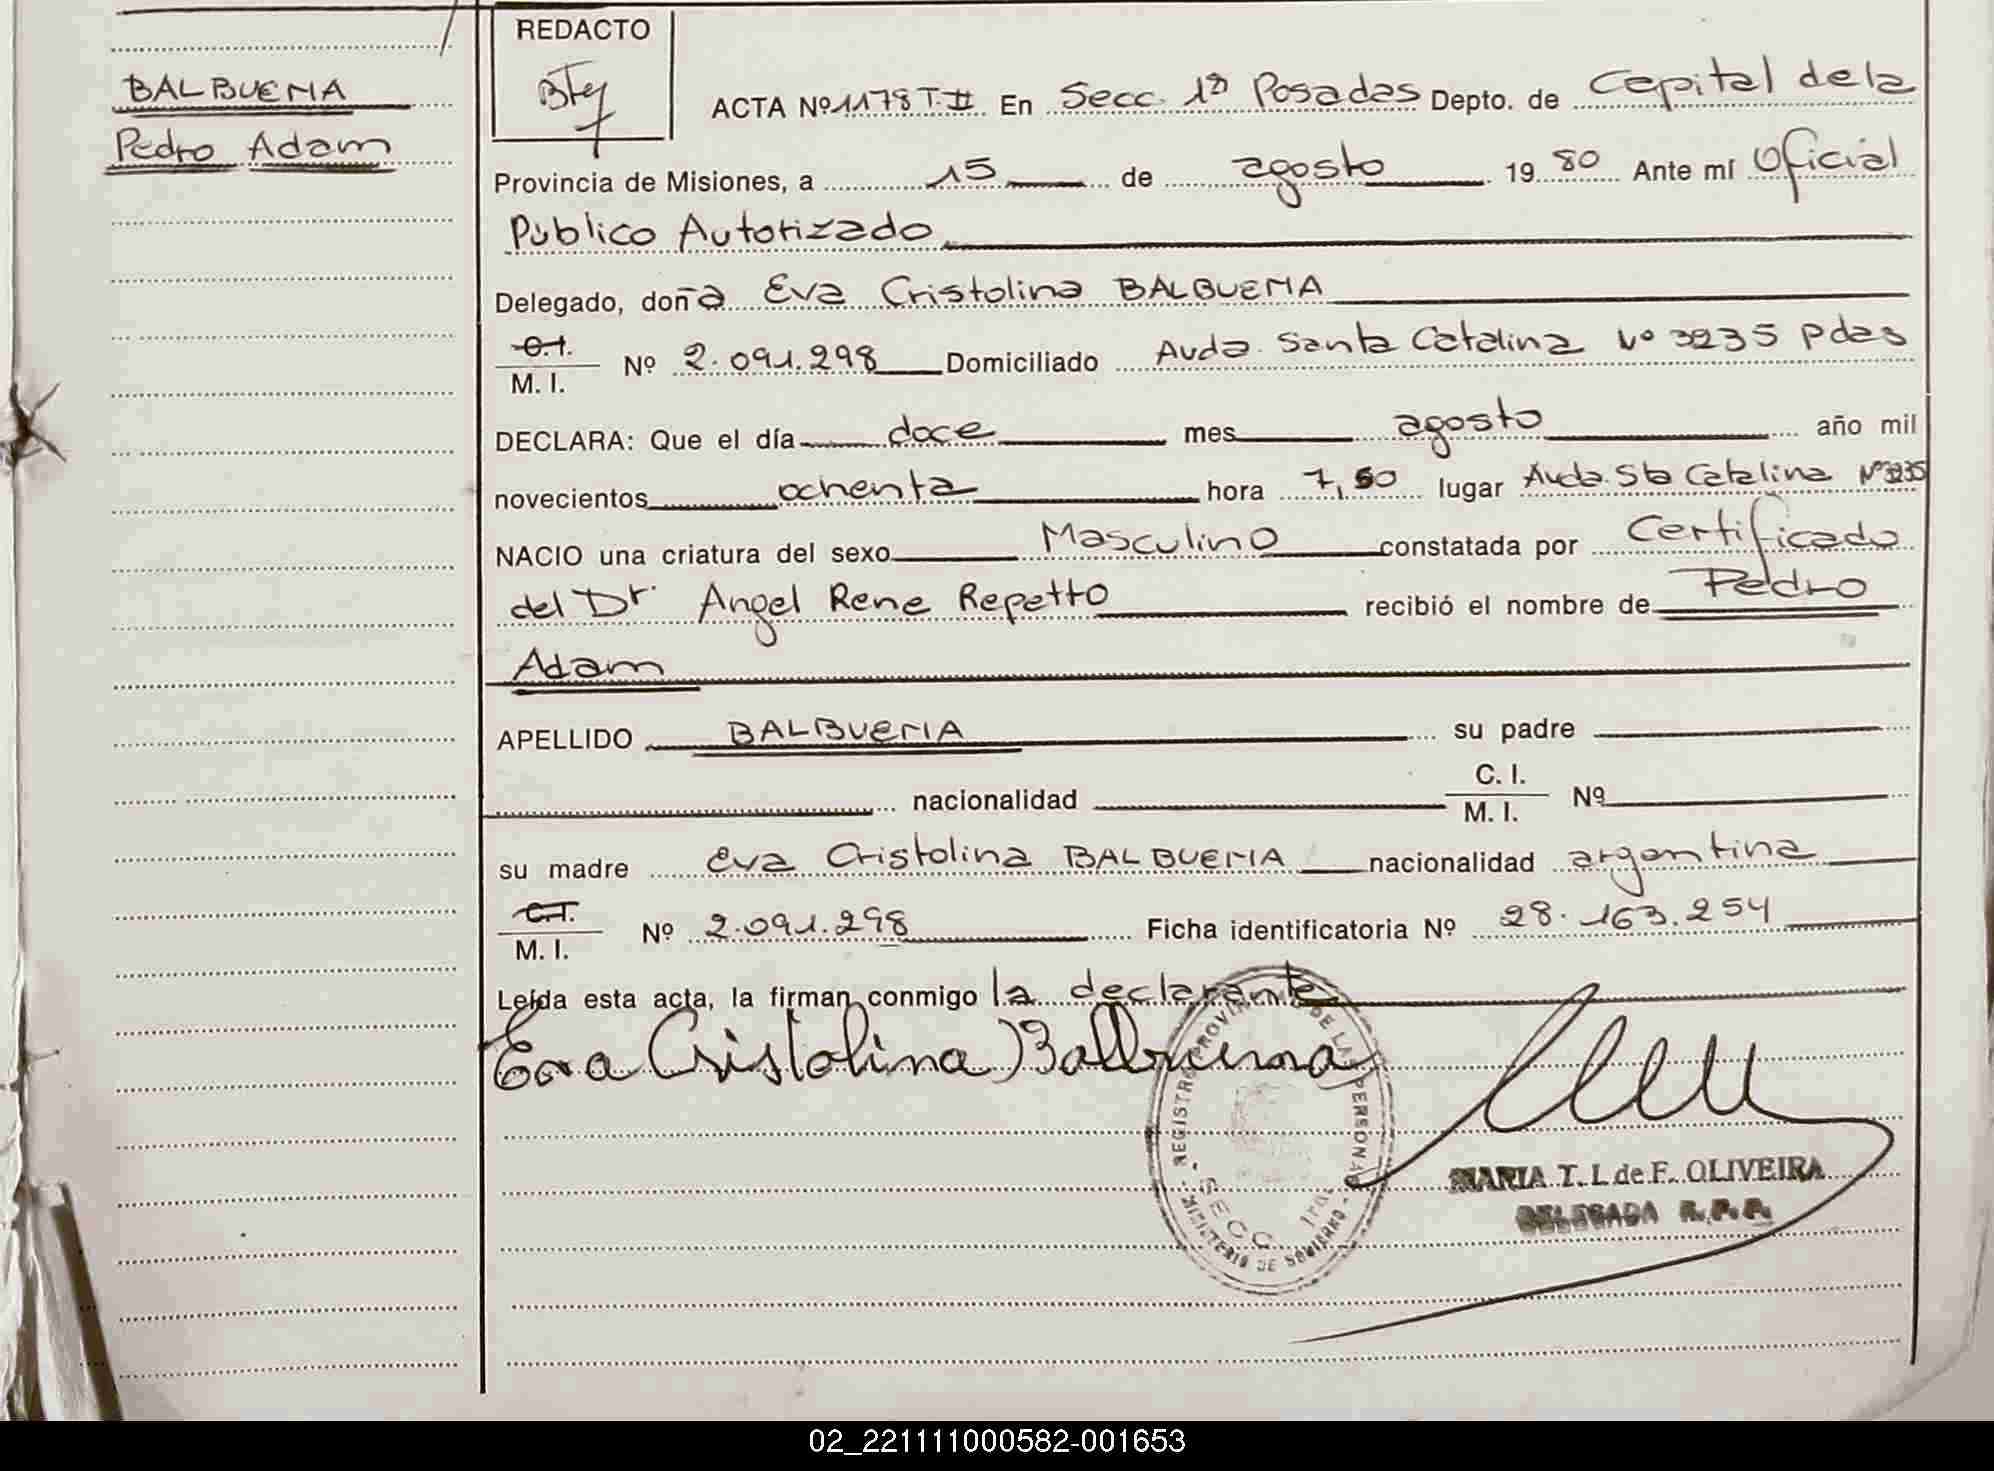 BALBUENA
Pedro Adam
REDACTO
ACTA Nº 1178 T. II En Secc. 1ª Posadas Depto. de Capital de la
Provincia de Misiones, a 15 de agosto 1980 Ante mí Oficial
Público Autorizado
Delegado, doña Eva Cristolina BALBUENA
C.I.
M. I. Nº 2.091.298 Domiciliado Avda. Santa Catalina Nº 3235 Pdas
DECLARA: Que el día doce mes agosto año mil
novecientos ochenta hora 7,50 lugar Avda. Sta Catalina Nº 3235
NACIO una criatura del sexo Masculino constatada por Certificado
del Dr. Angel Rene Repetto recibió el nombre de Pedro
Adam
APELLIDO BALBUENA su padre
nacionalidad C. I.
M. I. Nº
su madre Eva Cristolina BALBUENA nacionalidad argentina
C.I.
M. I. Nº 2.091.298 Ficha identificatoria Nº 28.163.254
Leída esta acta, la firman conmigo la declarante
Eva Cristolina Balbuena
REGISTRO PROVINCIAL DE LAS PERSONAS
SECC. 1ra
MINISTERIO DE GOBIERNO
MARIA T. I. de F. OLIVEIRA
DELEGADA R.P.P.
02_221111000582-001653